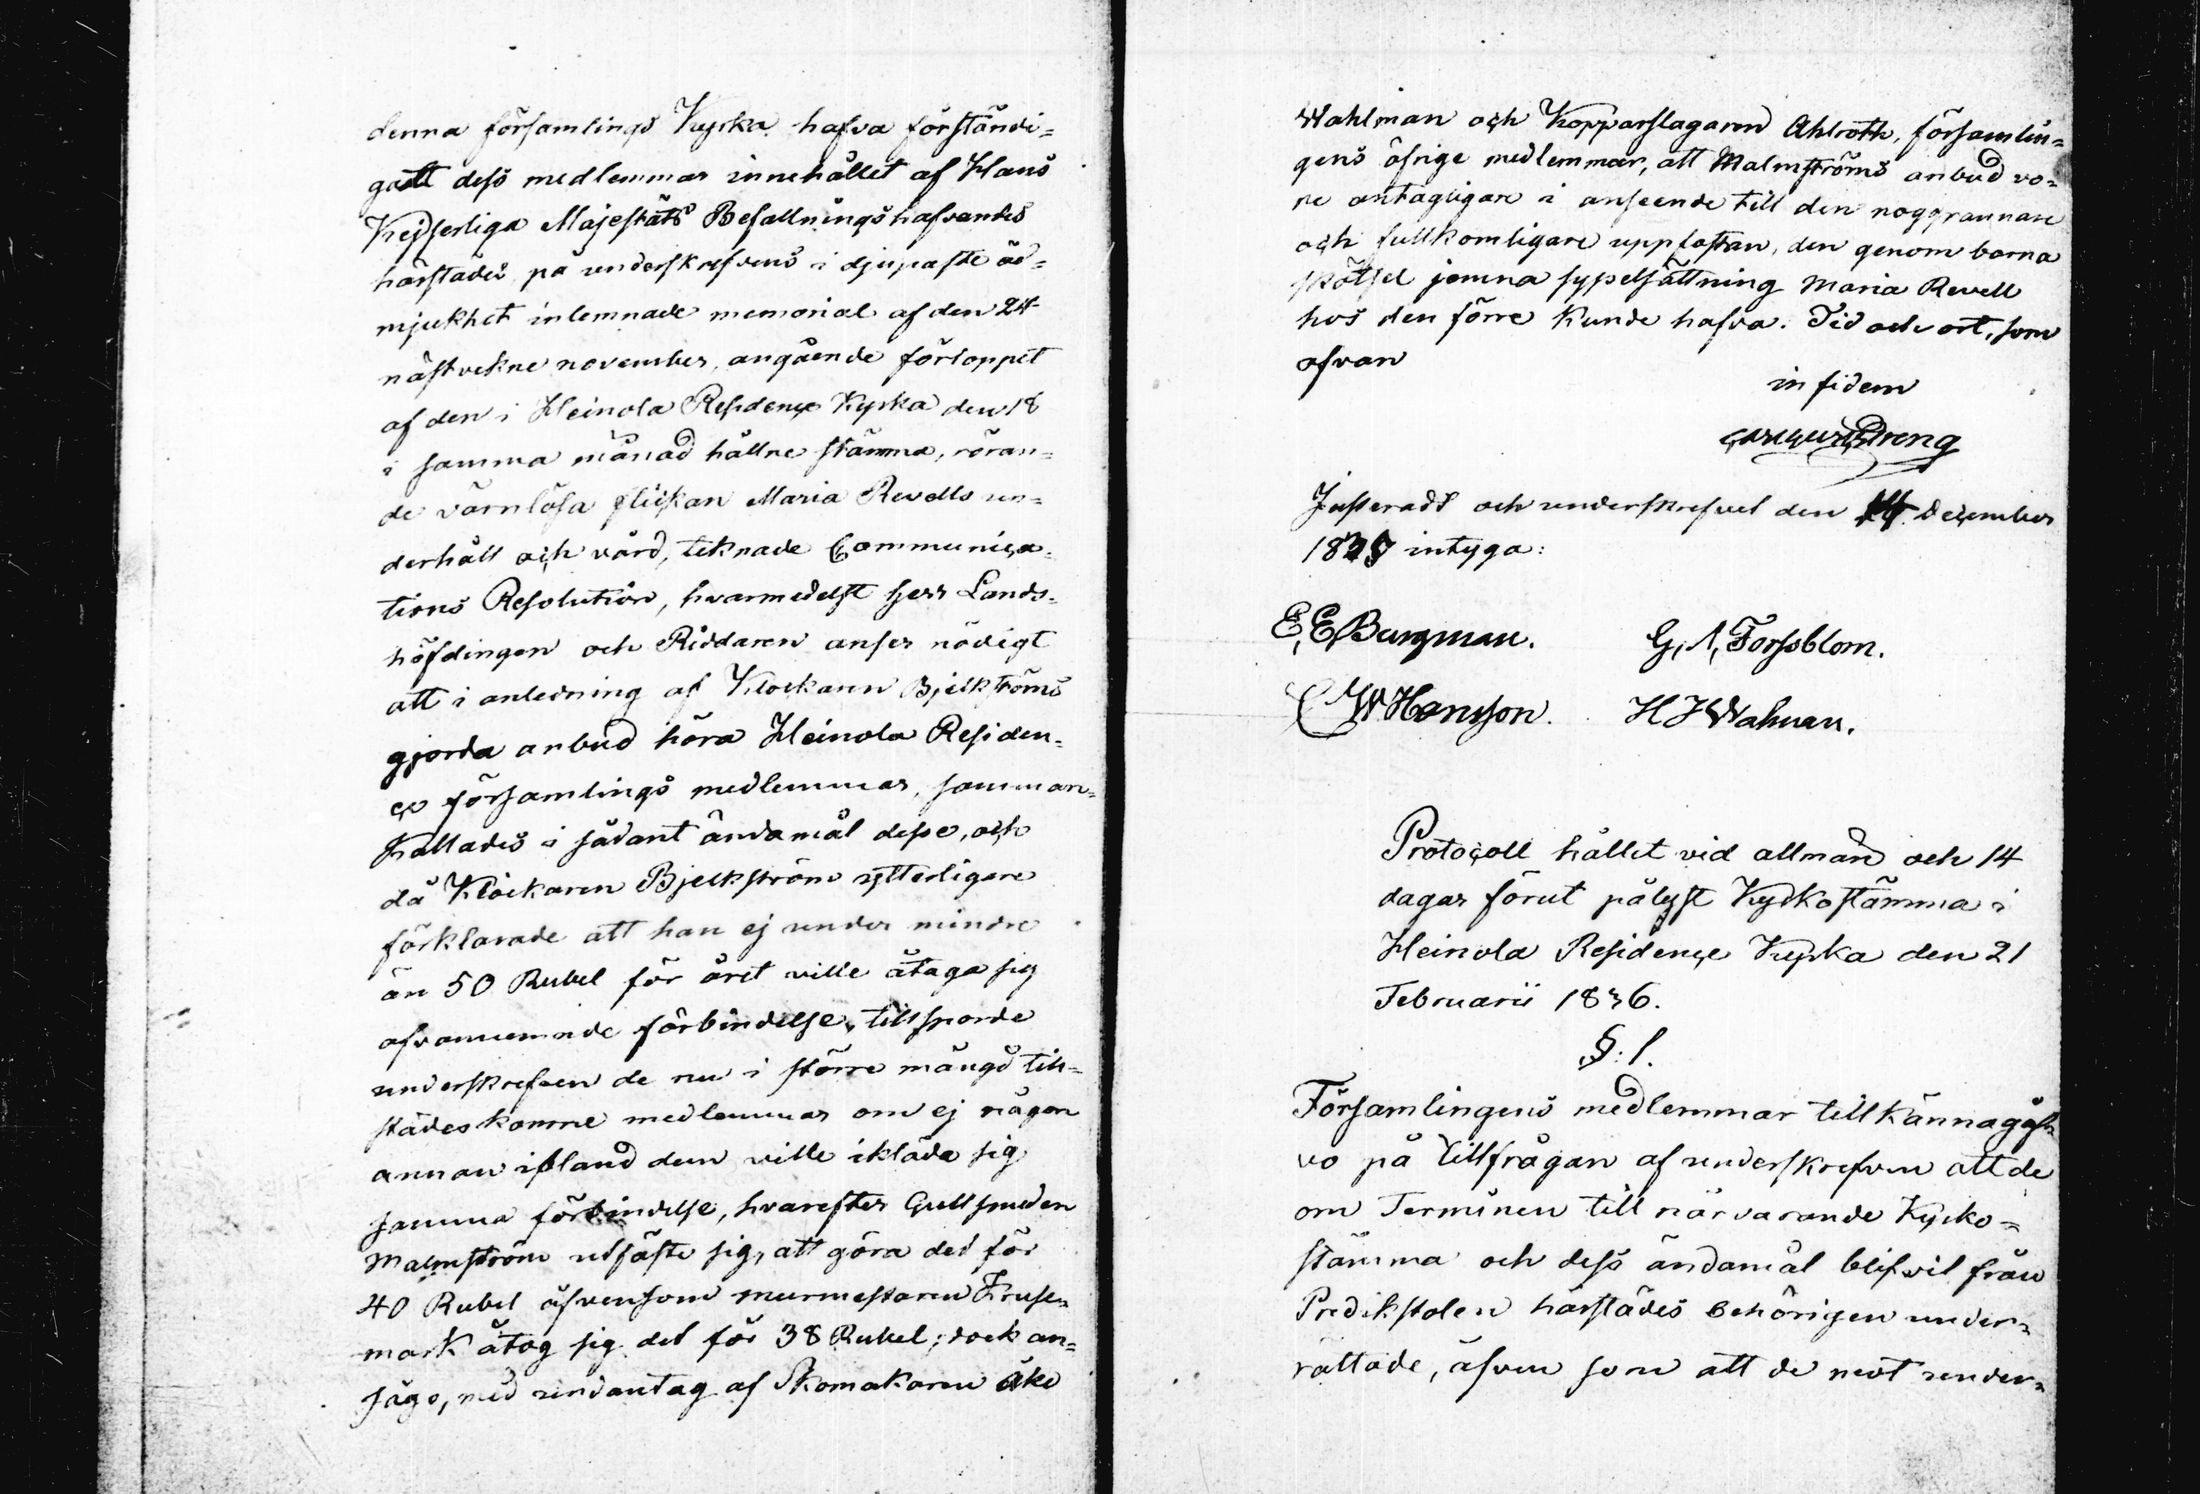 denna församlings Kyrka hafva förständi=
gatt dess medlemmar innehållet af Hans
Kejserliga Majestäts Befallningshafvandes
härstädes på underskrefvens i djupaste öd=
mjukhet inlemnade memorial af den 24
nästvekne november, angående förloppet
af den i Heinola Residençe Kyrka den 18
i samma månad hållne stämma, röran=
de värnlösa flickan Maria Revells un=
derhåll och vård, teknade Communica=
tions Resolution, hvarmedelst herr Lands=
höfdingen och Riddaren anser nödigt
att i anledning af Klockaren Bjelkströms
gjorda anbud höra Heinola Residen=
çe församlings medlemmar, samman=
kallades i sådant ändamål desse, och
då Klockaren Bjelkström ytterligare
förklarade att han ej under mindre
än 50 Rubel för året ville åtaga sig
ofvannemnde förbindelse, tillsporde
underskrefven de nu i större mängd till=
städeskomne medlemmar om ej någon
annan ibland dem ville ikläda sig
samma förbindelse, hvarefter Gullsmeden
Malmström utfäste sig, att göra det för
40 Rubel äfvensom murmestaren Kruse=
mark åtog sig det för 38 Rubel; dock an=
sågo, med undantag af Skomakaren Åke
Wahlman och Kopparslagaren Ahlroth, försam̄lin=
gens öfrige medlemmar, att Malmströms anbud vo=
re antagligare i anseende till den noggrannare
och fullkomligare uppfostran, den genom barna
skötsel jemna sysselsättning Maria Revell
hos den förre kunde hafva. Tid och ort, som
ofvan
in fidem
Justeradt och underskrefvet den 14 december
1835 intyga:
E, E, Bergman. G, A, Forssblom.
C W Hansson. H J Wahman.
Protocoll hållet vid allmän och 14
dagar förut pålyst Kyrkostämma i
Heinola Residençe Kyrka den 21
Februarii 1836.
§: 1.
Församlingens medlemmar tillkännagåf=
vo på tillfrågan af underskrefven att de
om Terminen till närvarande Kyrko=
stämma och dess ändamål blifvit från
Predikstolen härstädes behörigen under=
rättade, äfven som att de not under=